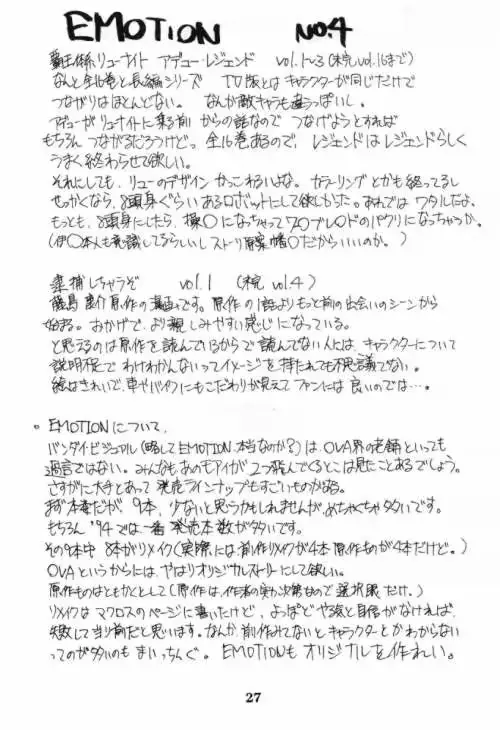 EMOTION No.4
覇王体系リューナイト アデュー・レジェンド vol.1~3(未完 vol.16まで)
なんと全16巻と長編シリーズ TV版とはキャラクターが同じだけで
つながりはほとんどない。 なんか敵キャラも違っぽいし。
アデューがリュナイトに乗る前からの話なので つなげようとすれば
もちろん つながるだろうけど。全16巻あるので、レジェンドはレジェンドらしく
うまく終わらせて欲しい。
それにしても、リューのデザイン かっこわるいよな。カラーリングとかも終ってるし
せっかくなら、8頭身ぐらいあるロボットにして欲しかった。あれでは ワタルだよ。
もっとも、8頭身にしたら、操〇になっちゃってワ〇ブレ〇ドのパクリになっちゃうか。
(伊〇本人も意識してるらしいしストーリ原案 幡〇だからいいのか。)
逮捕しちゃうぞ vol.1 (未完 vol.4)
藤島康介原作の漫画です。原作の1話よりもっと前の出会いのシーンから
始まる。おかげで、より親しみやすい感じになっている。
と思えるのは原作を読んでいるからで読んでない人には、キャラクターについて
説明不足で わけわかんないってイメージを持たれても不思議でない。
絵はきれいで、車やバイクにもこだわりが見えてファンには良いのでは…。
。EMOTIONについて、
バンダイ・ビジュアル(略してEMOTION、本当なのか?)は、OVA界の老舗といっても
過言ではない。みんなもあのモアイが2つ飛んでくるとこは見たことあるでしょう。
さすがに大手とあって発売ラインナップもすごいものがある。
まず本数だが、9本、少ないと思うかもしれませんがめちゃくちゃ多いです。
もちろん '94では一番発売本数が多いです。
その9本中 8本がリメイク(実際には前作リメイクが4本原作ものが4本だけど。)
OVAというからには、やはりオリジナルストーリーにして欲しい。
原作ものはともかくとして(原作は、作者の実力次第なので選択眼だけ。)
リメイクはマクロスのページに書いたけど、よっぽどやる気と自信がなければ、
失敗して当り前だと思います。なんか前作みてないとキャラクターとかわからない
ってのが多いのもまいっちんぐ。EMOTIONもオリジナルを作れい。
27